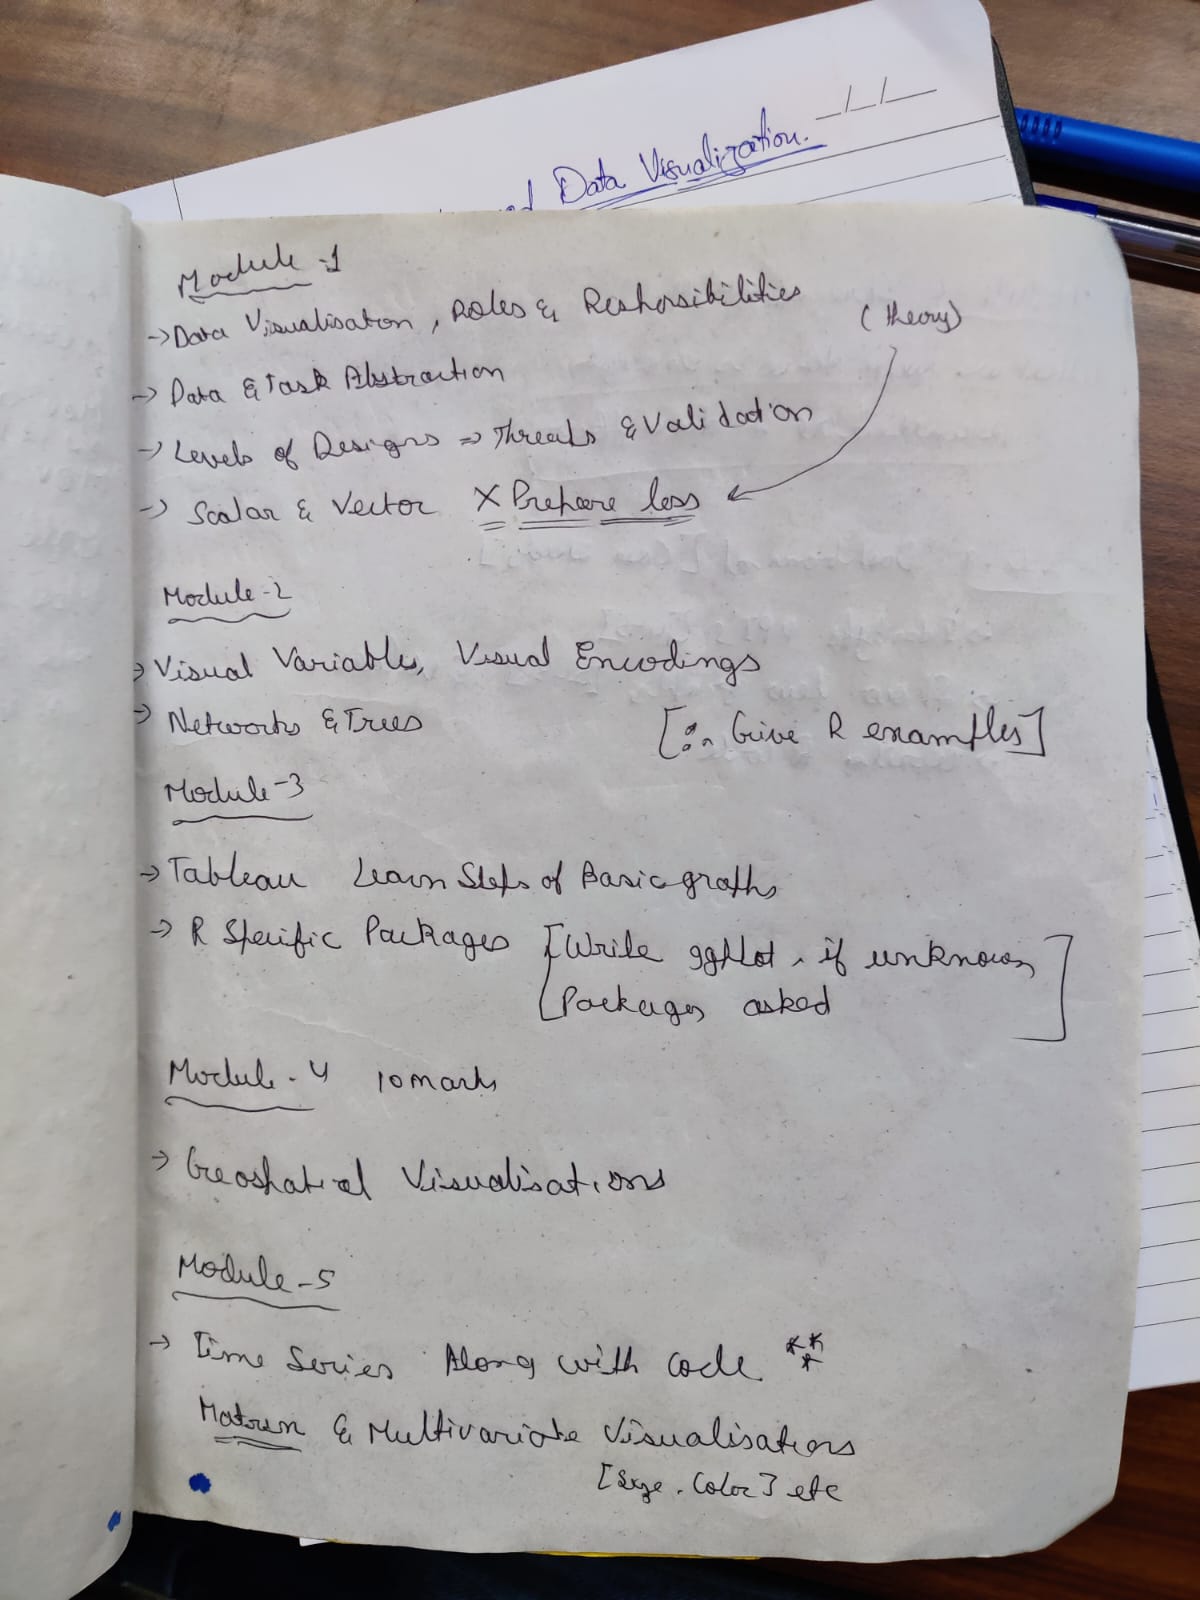 Data Visualization.
Module-1
(theory)
→ Data Visualisation, Roles & Responsibilities
→ Data & Task Abstraction
→ Levels of Designs => Threats & Validation
→ Scalar & Vector X Prepare less
Module-2
→ Visual Variables, Visual Encodings
→ Networks & Trees [∴ Give R examples]
Module-3
→ Tableau Learn Steps of Basic graphs
→ R Specific Packages [Write ggplot, if unknown
Packages asked]
Module-4 10 marks
→ Geospatial Visualisations
Module-5
→ Time Series Along with code ***
Matrix & Multivariate Visualisations
[Size, Color] etc